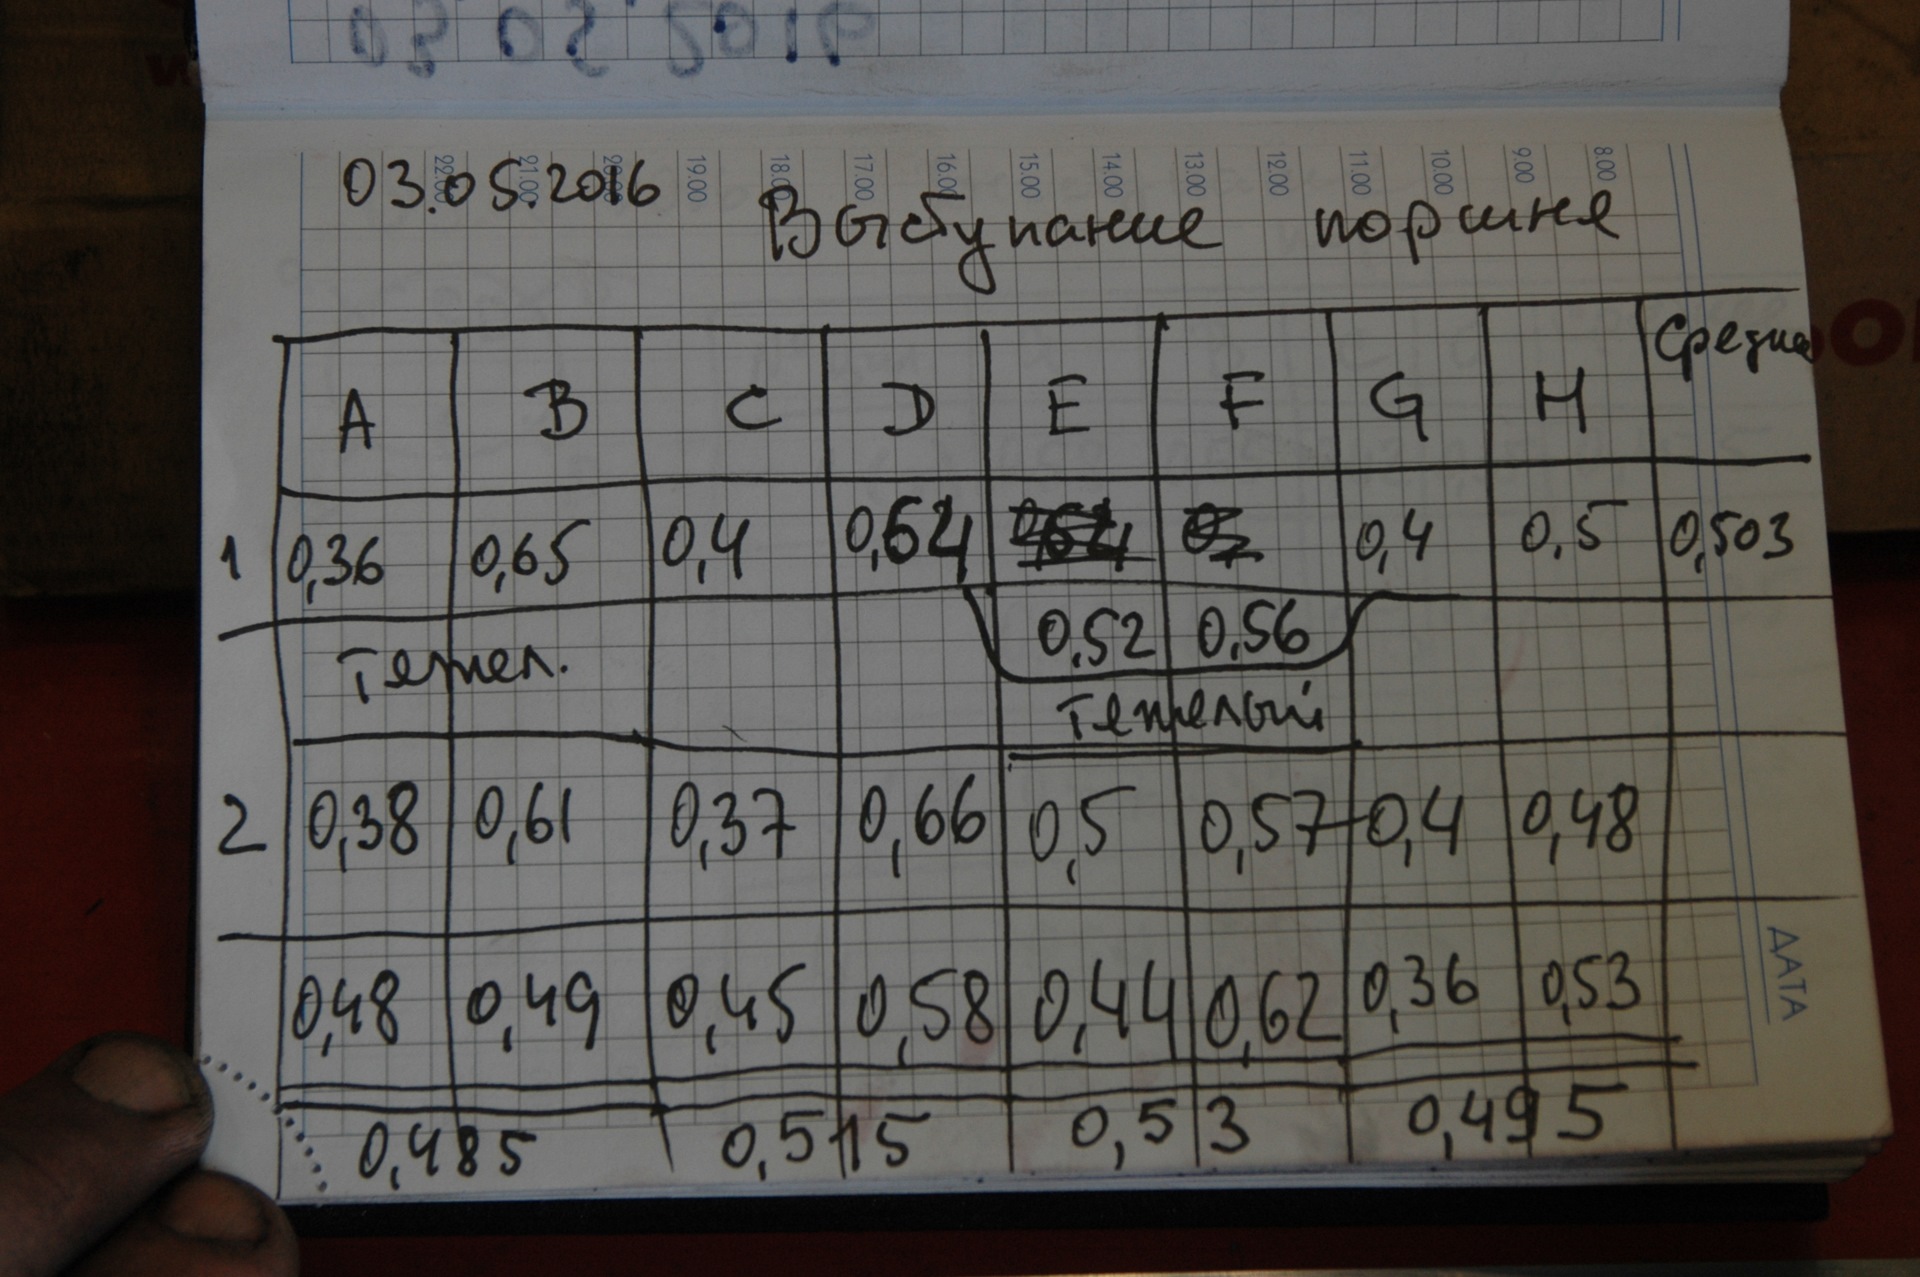 03.05.2016
22.00 21.00 20.00 19.00 18.00 17.00 16.00 15.00 14.00 13.00 12.00 11.00 10.00 9.00 8.00
Выступание поршня
A B C D E F G H Средне
1 0,36 0,65 0,4 0,64 0,4 0,5 0,503
0,52 0,56
Тежел. Тежелый
2 0,38 0,61 0,37 0,66 0,5 0,57 0,4 0,48
0,48 0,49 0,45 0,58 0,44 0,62 0,36 0,53
0,485 0,515 0,53 0,495
ДАТА